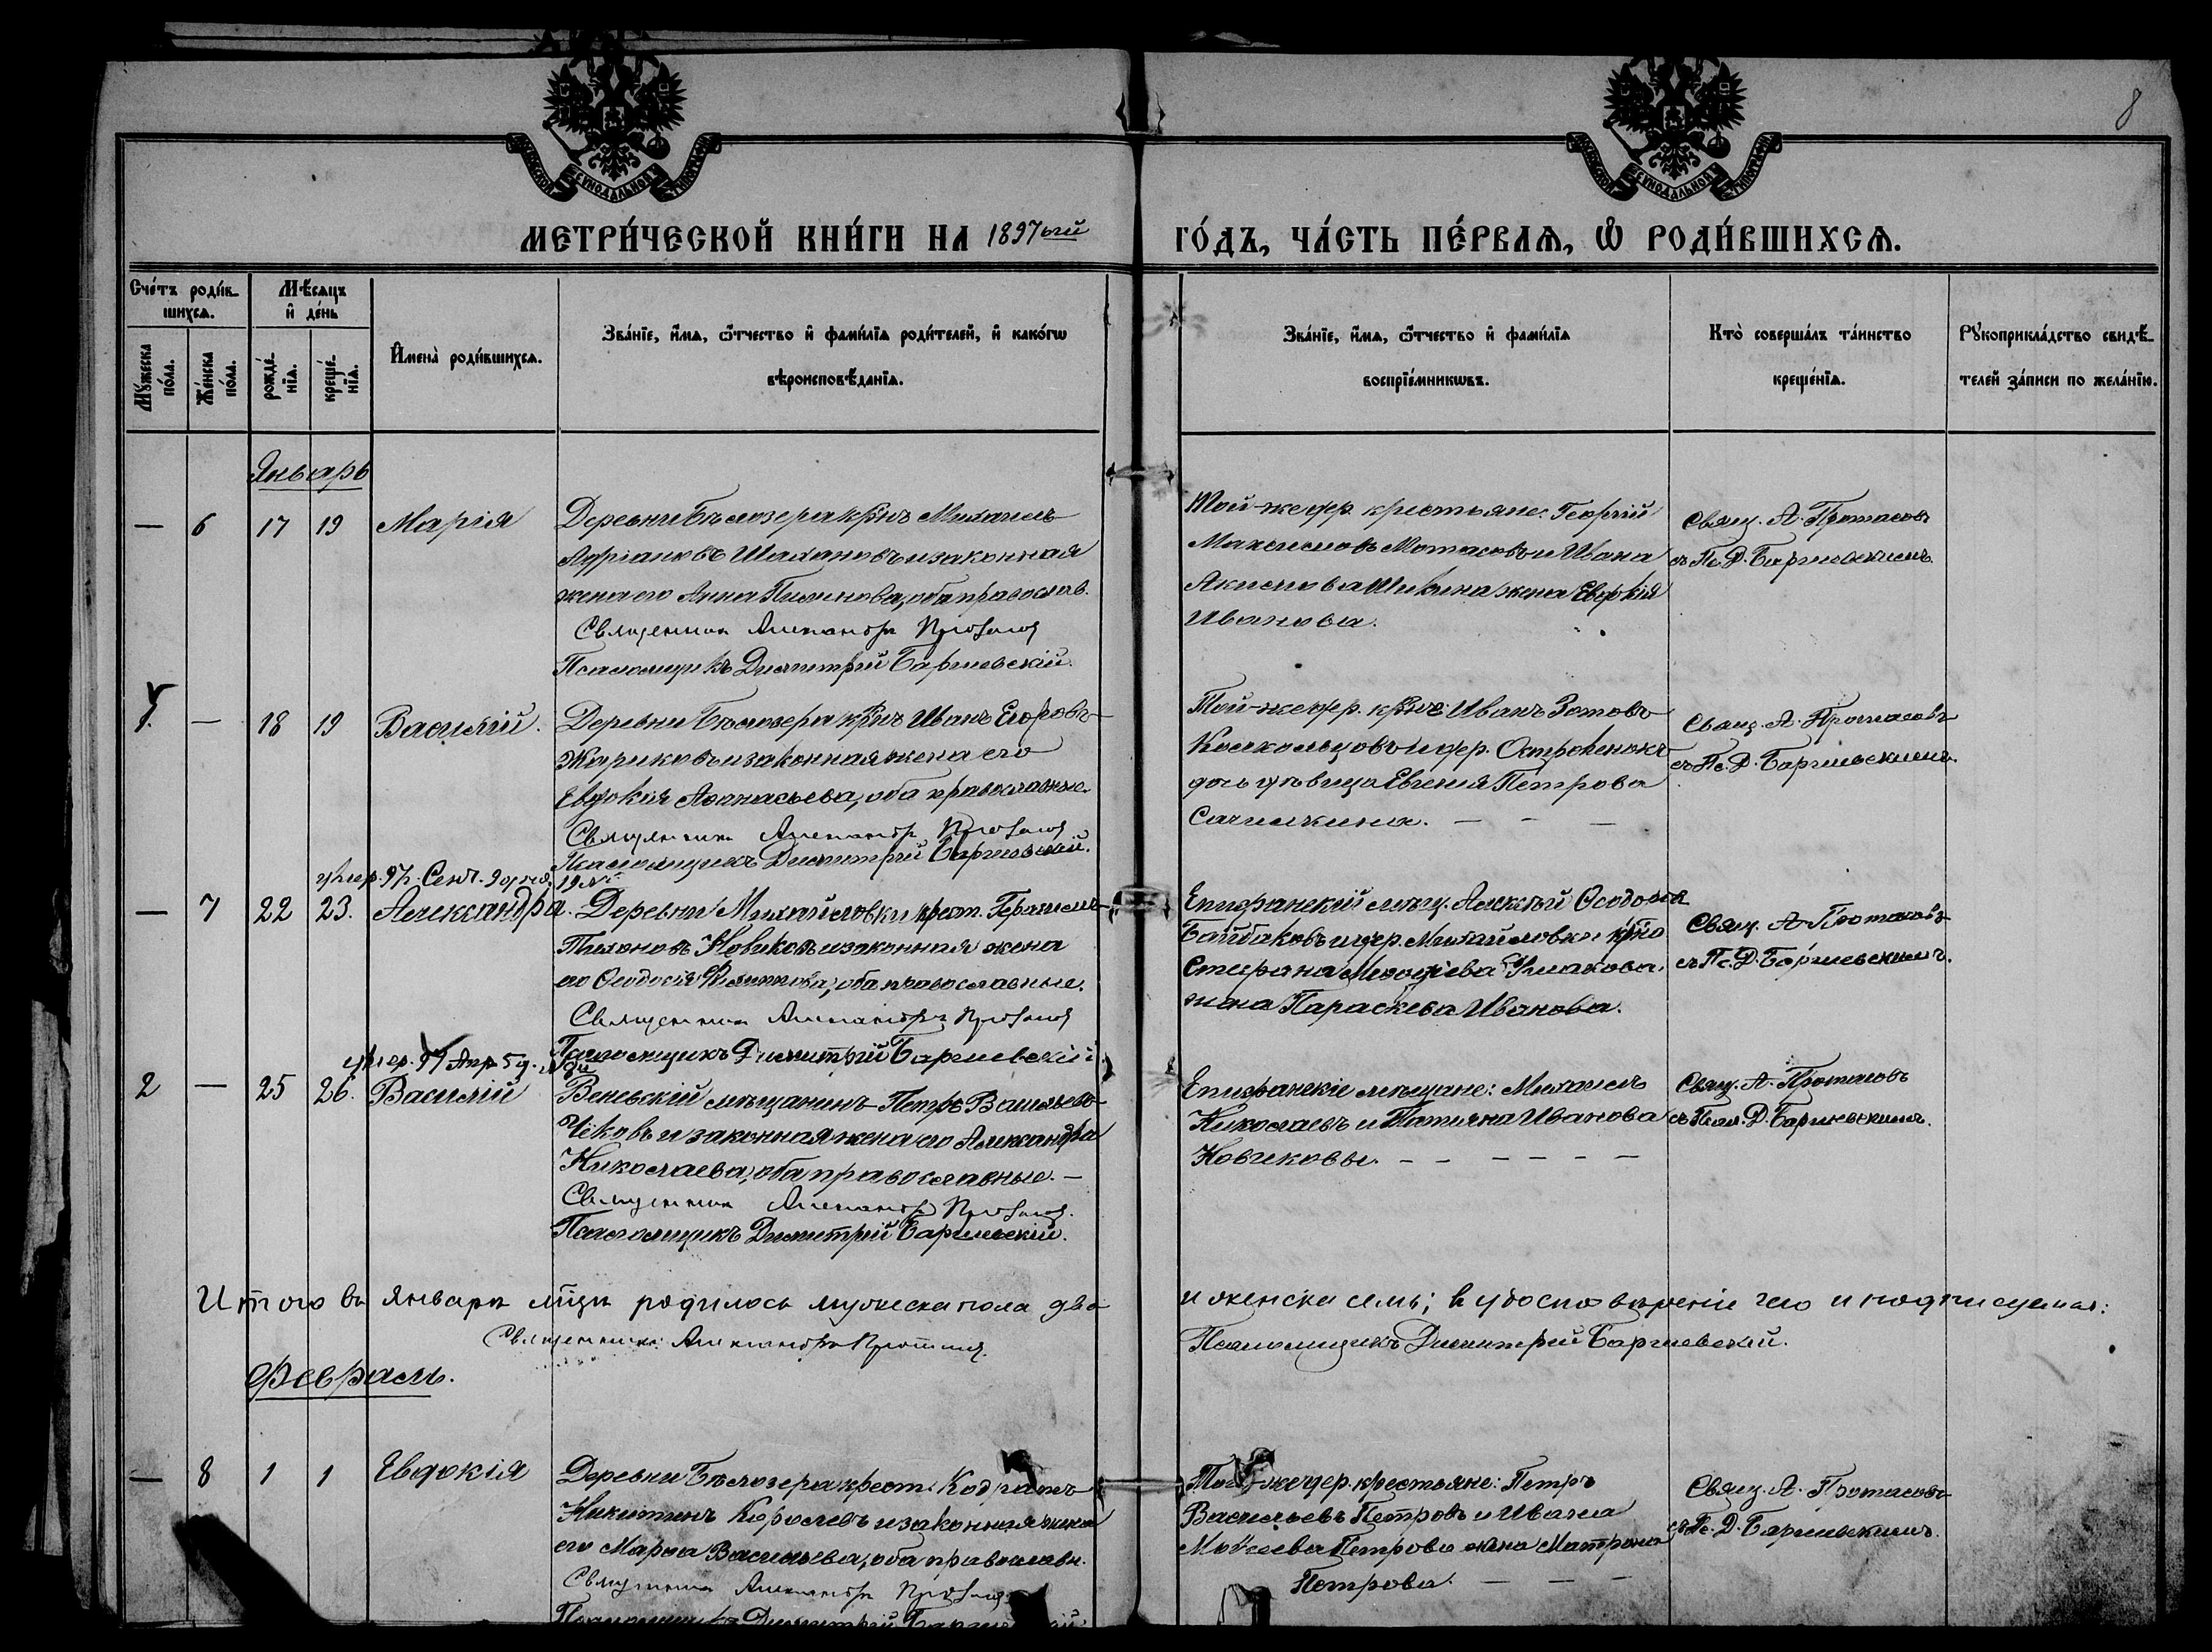 8
МЕТРИ́ЧЕСКОЙ КНИ́ГИ НА 1897ый ГО́ДЪ, ЧА́СТЬ ПЕ́РВАѦ, Ѡ РОДИ́ВШИХСѦ.
Сче́тъ роди́в-
шихсѧ.
Мѣсяцъ
и҆ де́нь
Мꙋжеска
по́ла.
Же́нска
по́ла.
рожде́-
нїѧ.
креще́-
нїѧ.
И҆мена̀ роди́вшихсѧ.
Зва́нїе, и҆́мѧ, ѻ҆́тчество и҆ фами́лїѧ роди́телей, и҆ како́гѡ
вѣроисповѣ́данїѧ.
Зва́нїе, и҆́мѧ, ѻ҆́тчество и҆ фами́лїѧ
воспрїе́мникѡвъ.
Кто̀ соверша́лъ та́инство
креще́нїѧ.
Рꙋкоприкла́дство свидѣ́-
телей за́писи по жела́нїю.
Январь
— 6 17 19 Марія
Деревни Бѣлозера крнъ Михаилъ
Адріановъ Шахановъ и законная
жена его Анна Пименова, оба православ.
Священникъ Александръ Протасов
Псаломщикъ Димитрій Баршевскій.
Той-же дер. крестьяне: Георгій
Максимовъ Матасовъ и Ивана
Акимова Шивина жена Евдокія
Иванова.
Свящ. А. Протасовъ
съ Пс. Д. Баршевскимъ.
— 18 19 Василій.
Деревни Бѣлозера крнъ Иванъ Егоровъ
Жариковъ и законная жена его
Евдокія Аѳанасьева, оба православные.
Священникъ Александръ Протасов
Псаломщикъ Димитрій Баршевскій.
Той-же дер. крнъ: Иванъ Зотовъ
Колкольцовъ и дер. Островенокъ
дочь дѣвица Евгенія Петрова
Сачилкина. — — —
Свящ. А. Протасовъ
съ Пс. Д. Баршевскимъ.
умер. 97. Сент. 9 дня. 19 №
— 7 22 23. Александра.
Деревни Михайловки крест. Герасимъ
Тихоновъ Новиковъ и законная жена
его Ѳеодосія Филиппова, оба православные.
Священникъ Александръ Протасов
Псаломщикъ Димитрій Баршевскій.
Епифанскій мѣщ. Алексѣй Ѳеодоров
Байбаковъ и дер. Михайловки крно
Стефана Меѳодіева Ушакова
жена Параскева Иванова.
Свящ. А. Протасовъ
съ Пс. Д. Баршевскимъ.
умер. 97 Апр 5 д.
2 — 25 26. Василій
Веневскій мѣщанинъ Петръ Васильевъ
Чековъ и законная жена его Александра
Николаева, оба православные. —
Священникъ Александръ Протасов.
Псаломщикъ Димитрій Баршевскій.
Епифанскіе мѣщане: Михаилъ
Николаевъ и Татьяна Иванова
Новиковы. — — — — — —
Свящ. А. Протасовъ
съ Псал. Д. Баршевскимъ.
Итого въ Январѣ мцѣ родилось мужеска пола два и женска семь; въ удостовѣреніи чего и подписуемся:
Священникъ Александръ Протасов.
Псаломщикъ Димитрій Баршевскій.
Февраль.
— 8 1 1 Евдокія
Деревни Бѣлозера крест. Кодратъ
Никитинъ Королевъ и законная жена
его Марѳа Васильева, оба православн.
Священникъ Александръ Протасов
Псаломщикъ Димитрій
Той-же дер. крестьяне: Петръ
Васильевъ Петровъ и Ивана
Моѵсеева Петрова жена Матрона
Петрова. — — —
Свящ. А. Протасовъ
съ Пс. Д. Баршевскимъ.